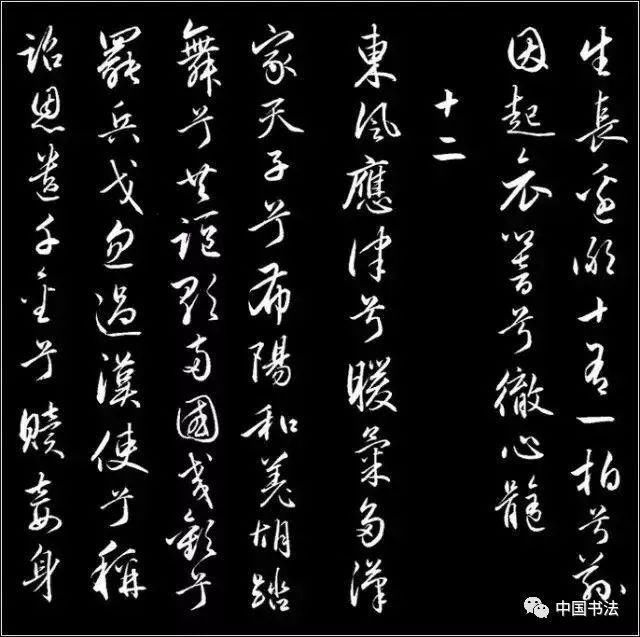 生長邊鄙十有一拍兮茲
因起哀響兮徹心髓
十二
東風應律兮暖氣多漢
家天子兮布陽和羌胡踏
舞兮共謳歌兩國交歡兮
罷兵戈忽遇漢使兮稱
詔恩遺千金兮贖妾身
中国书法